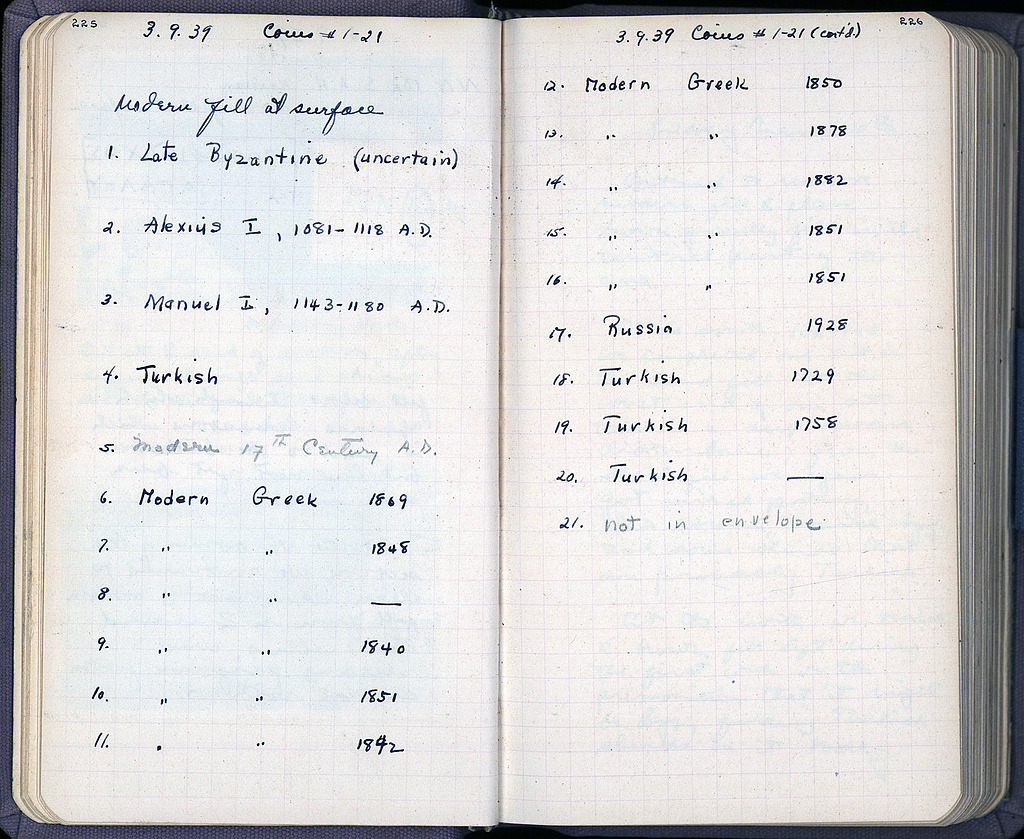 225
3.9.39 Coins # 1-21
Modern fill at surface
1. Late Byzantine (uncertain)
2. Alexius I, 1081-1118 A.D.
3. Manuel I, 1143-1180 A.D.
4. Turkish
5. Modern 17TH Century A.D.
6. Modern Greek 1869
7. " " 1848
8. " " —
9. " " 1840
10. " " 1851
11. " "
226
3.9.39 Coins # 1-21 (cont'd)
12. Modern Greek 1850
13. " " 1878
14. " " 1882
15. " " 1851
16. " " 1851
17. Russia 1928
18. Turkish 1729
19. Turkish 1758
20. Turkish —
21. not in envelope